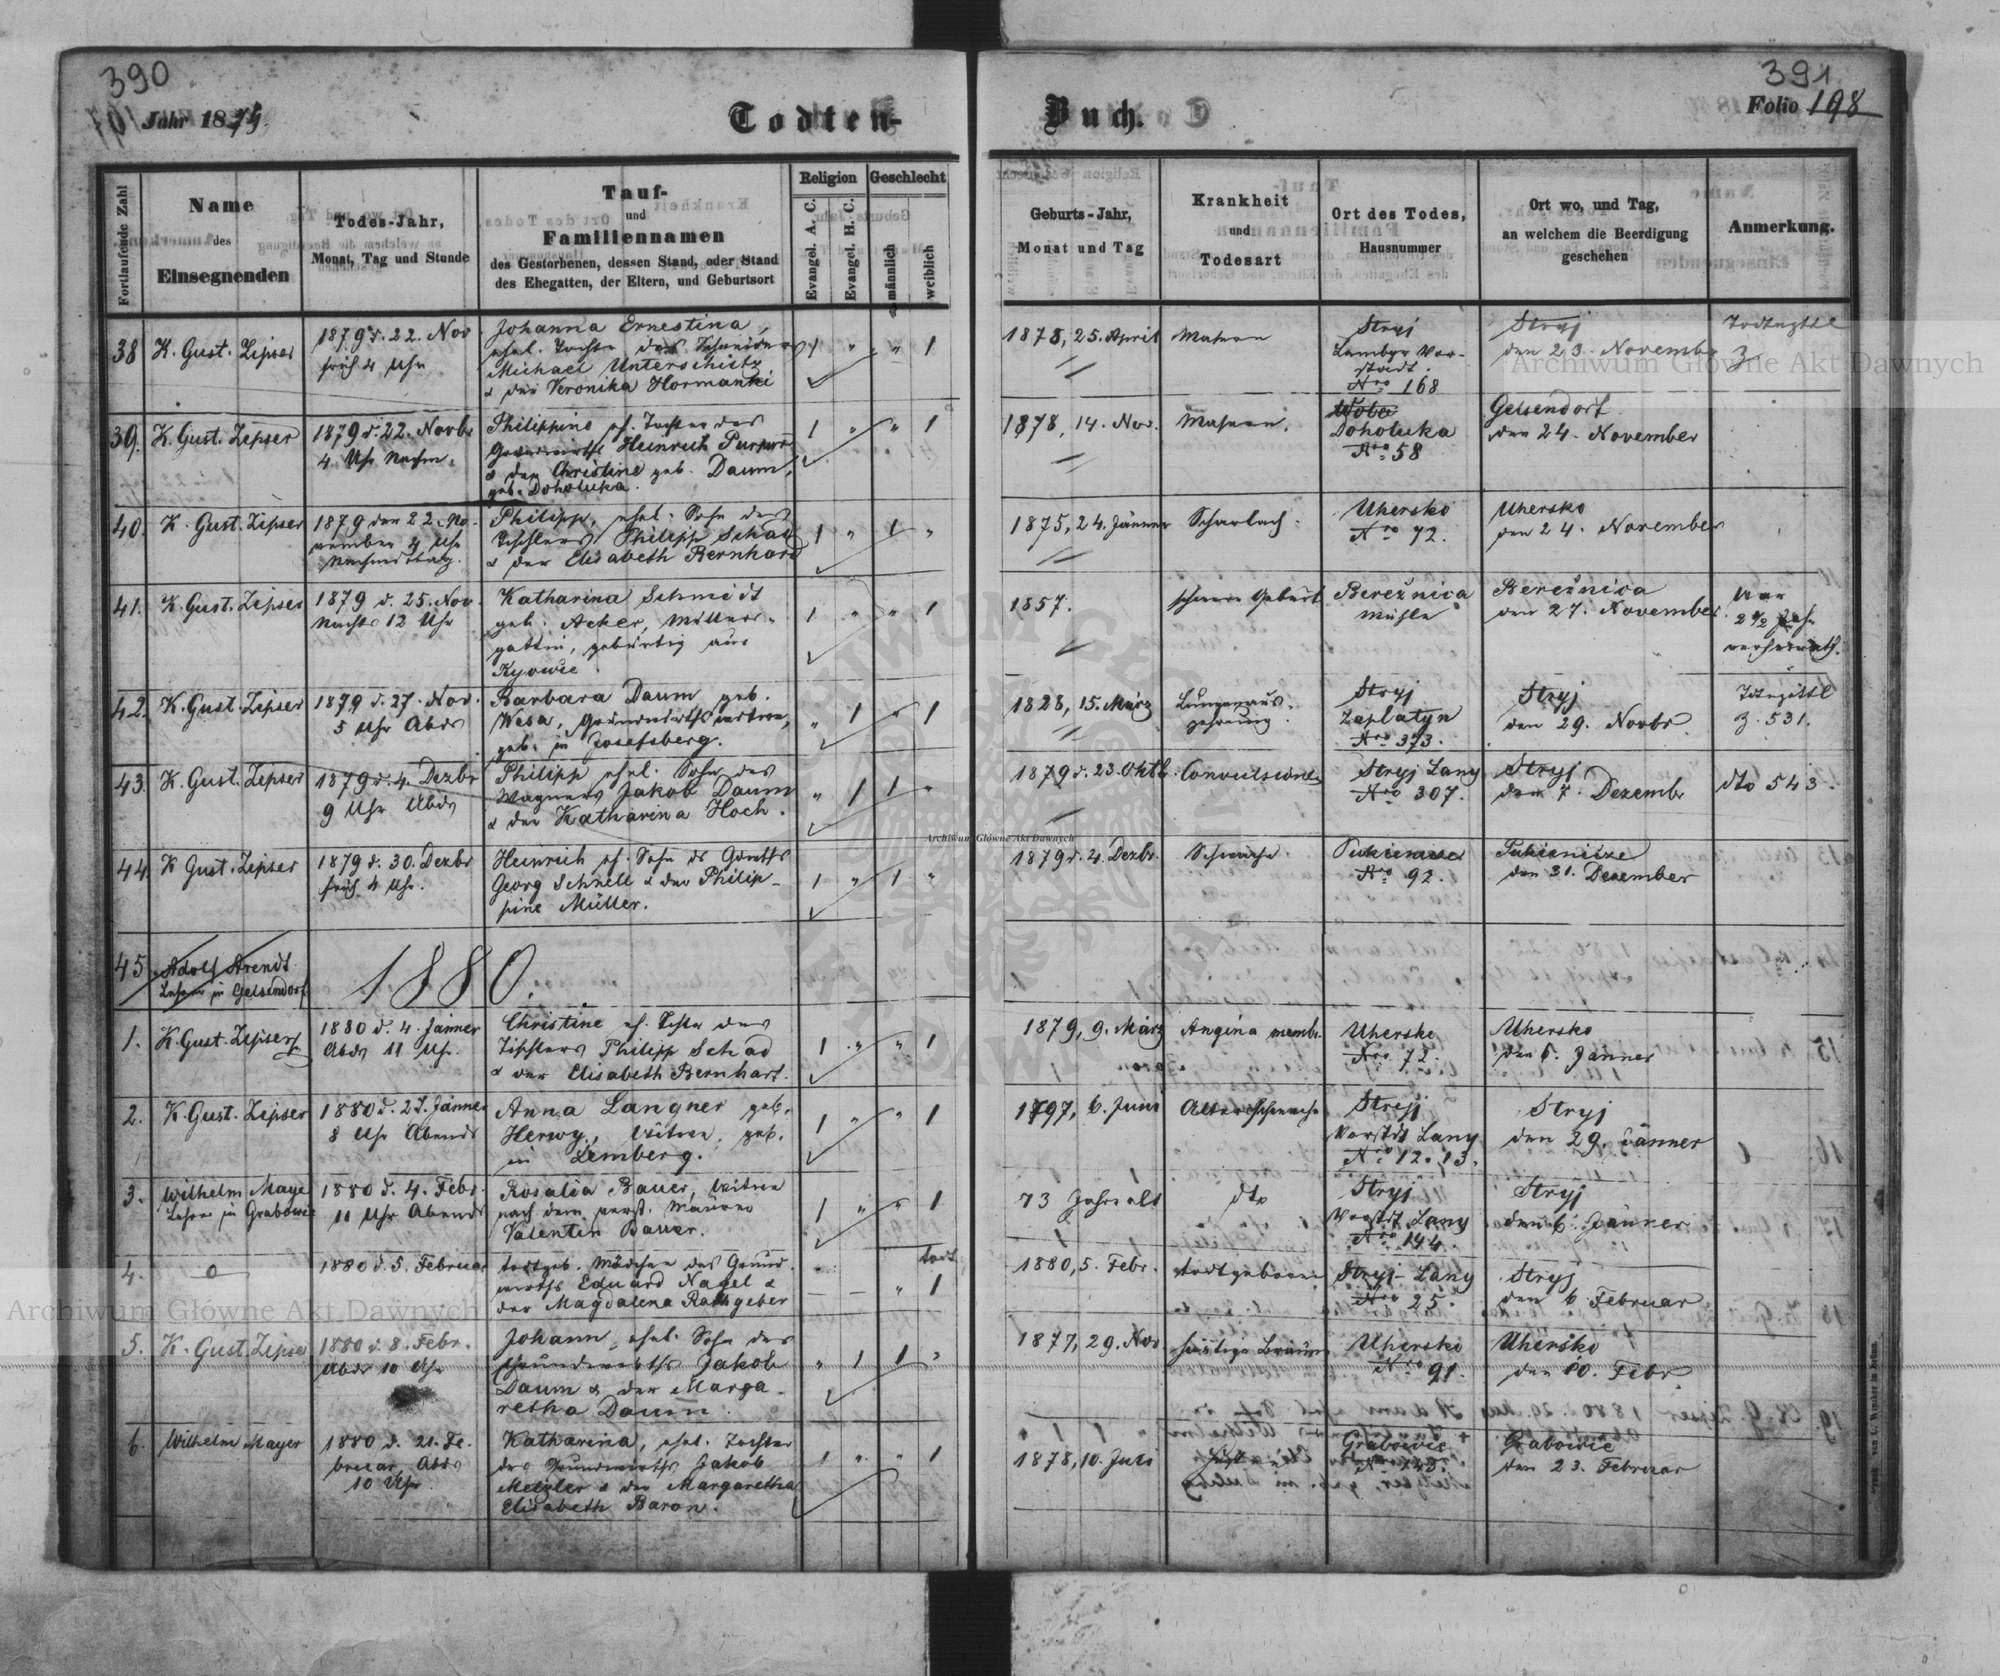 390
Jahr 1879.
Todten-
Fortlaufende Zahl
Name
des
Einsegnenden
Todes-Jahr,
Monat, Tag und Stunde
Tauf-
und
Familiennamen
des Gestorbenen, dessen Stand, oder Stand
des Ehegatten, der Eltern, und Geburtsort
Religion
Evangel. A. C.
Evangel. H. C.
Geschlecht
männlich
weiblich
38 K. Gust. Zipser
1879 d. 22. Nov.
früh 4 Uhr
Johanna Ernestina,
ehel. Tochter des Schneiders
Michael Unterschütz
& der Veronika Hormanki
1 " " 1
39. K. Gust. Zipser
1879 d. 22. Novbr
4 Uhr Nachm.
Philippine eh. Tochter des
Grundwirths Heinrich Purpur
& der Christine geb. Daum,
geb. Doholuka.
1 " " 1
40. K. Gust. Zipser
1879 den 22. No-
vember 4 Uhr
Nachmittag.
Philipp, ehel. Sohn des
Tischlers Philipp Schad
& der Elisabeth Bernhard
1 " 1 "
41. K. Gust. Zipser
1879 d. 25. Nov.
Nachts 12 Uhr
Katharina Schmidt
geb. Acker, Müllers-
gattin, gebürtig aus
Kyowie
1 " " 1
42. K. Gust. Zipser
1879 d. 27. Nov.
5 Uhr Abds
Barbara Daum geb.
Wesa, Grundwirthswitwe,
geb. in Josefsberg.
" 1 " 1
43. K. Gust. Zipser
1879 d. 4. Dezbr
9 Uhr Abds
Philipp ehel. Sohn des
Wagners Jakob Daum
& der Katharina Hoch.
" 1 1 "
44. K Gust. Zipser
1879 d. 30. Dezbr
früh 4 Uhr.
Heinrich eh. Sohn ds Gdwths
Georg Schnell & der Philip-
pine Müller.
1 " 1 "
45 Adolf Arendt
Lehrer in Gelsendorf
1880.
1. K. Gust. Zipser
1880 d. 4. Jänner
Abds 11 Uhr.
Christine eh. Tochter des
Tischlers Philipp Schad
& der Elisabeth Bernhart.
1 " " 1
2. K. Gust. Zipser
1880 d. 27. Jänner
8 Uhr Abends
Anna Langner geb.
Herwy, Witwe, geb.
in Lemberg.
1 " " 1
3. Wilhelm Maye
Lehrer in Grabowie
1880 d. 4. Febr.
11 Uhr Abends
Rosalia Bauer, Witwe
nach dem verst. Maurer
Valentin Bauer.
1 " " 1
4. o
1880 d. 5. Februar
todtgeb. Mädchen des Grund-
wirths Eduard Nagel &
der Magdalena Rathgeber
todt
— — " 1
5. K. Gust. Zipser
1880 d. 8. Febr.
Abds 10 Uhr
Johann, ehel. Sohn des
Grundwirths Jakob
Daum & der Marga-
retha Daum.
" 1 1 "
6. Wilhelm Mayer
1880 d. 21. Fe-
bruar Abds
10 Uhr.
Katharina, ehel. Tochter
des Grundwirths Jakob
Metzler & der Margaretha
Elisabeth Baron.
1 " " 1
391
Buch.
Folio 198
Geburts-Jahr,
Monat und Tag
Krankheit
und
Todesart
Ort des Todes,
Hausnummer
Ort wo, und Tag,
an welchem die Beerdigung
geschehen
Anmerkung.
1878, 25. April
Masern
Stryj
Lembgr Vor-
stadt.
Nro 168
Stryj
den 23. Novembr
1878, 14. Nov.
Masern.
Wola
Doholuka
Nro 58
Gelsendorf
den 24. November
1875, 24. Jänner
Scharlach.
Uhersko
Nro 72.
Uhersko
den 24. November
1857.
schwere Geburt
Berežnica
Mühle
Berežnica
den 27. November
War
2 1/2 Jahr
verheirath.
1828, 15. März
Lungenaus-
zehrung.
Stryj
Zaplatyn
Nro 373.
Stryj
den 29. Novbr.
Todtzettl
Z. 531.
1879 d. 23. Oktb.
Convulsionen
Stryj Lany
Nro 307.
Stryj
den 7. Dezembr
dto 543.
1879 d. 4. Dezbr.
Schwäche
Pukienicze
Nro 92.
Pukienicze
den 31. Dezember
1879, 9. März
Angina membr.
Uhersko
Nro 72.
Uhersko
den 6. Jänner
1797, 6. Juni
Altersschwäche
Stryj
Vorstdt Lany
Nro 12. 13.
Stryj
den 29. Jänner
73 Jahre alt
dto
Stryj
Vorstdt Lany
Nro 144.
Stryj
den 6. Jänner
1880, 5. Febr.
todtgeboren
Stryj-Lany
Nro 25.
Stryj
den 6 Februar
1877, 29. Nov.
häutige Bräune
Uhersko
Nro 91.
Uhersko
den 10. Febr.
1878, 10. Juli
Grabowie
Grabowie
den 23. Februar
Archiwum Główne Akt Dawnych
Archiwum Główne Akt Dawnych
Archiwum Główne Akt Dawnych